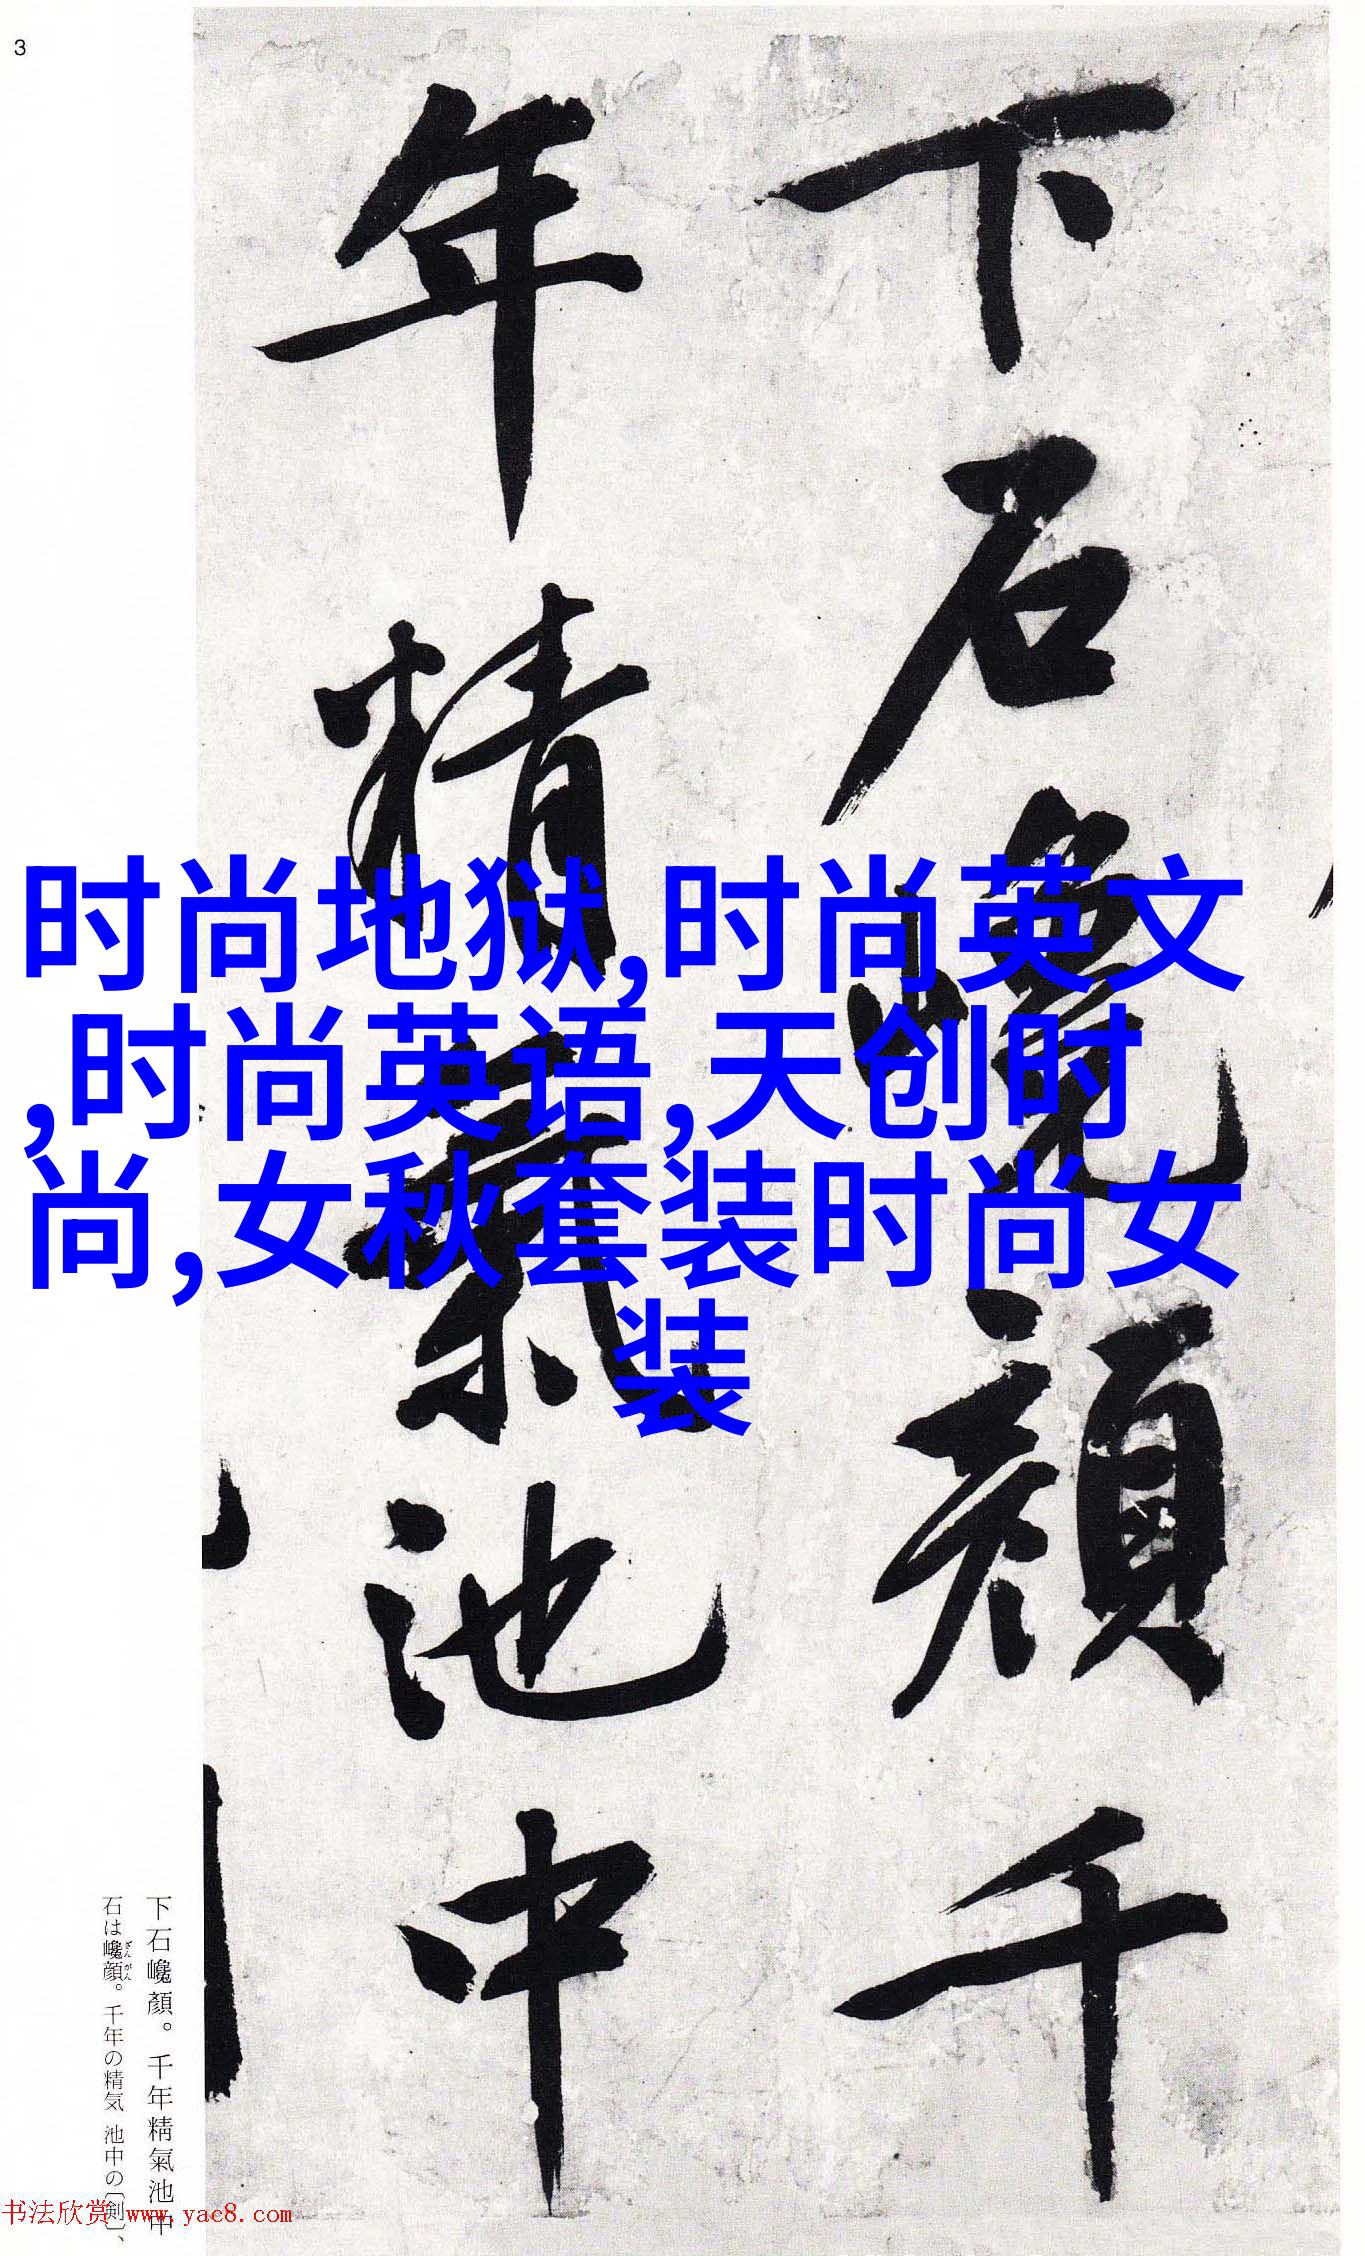 3
下石巉顔千
年精氣池中
时尚地狱,时尚英文
,时尚英语,天创时
尚,女秋套装时尚女
装
下石巉顏。千年精氣池中
石は巉顔。千年の精気 池中の〔剣〕、
ざんがん
书法欣赏 www.yac8.com